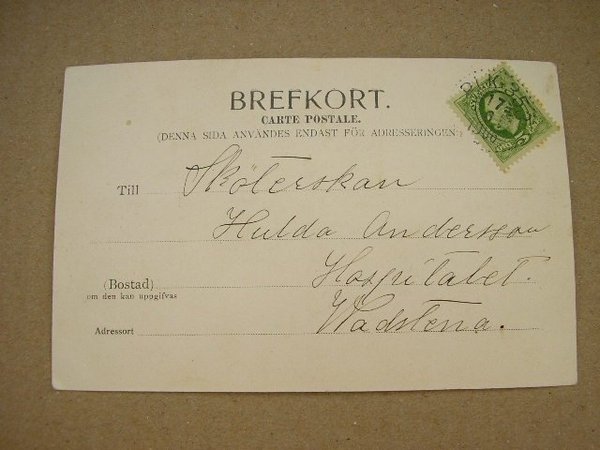 BREFKORT.
CARTE POSTALE.
(DENNA SIDA ANVÄNDES ENDAST FÖR ADRESSERINGEN.)
PLK 35
17
Till Sköterskan
Hulda Andersson
(Bostad) Hospitalet.
om den kan uppgifvas
Adressort Wadstena.